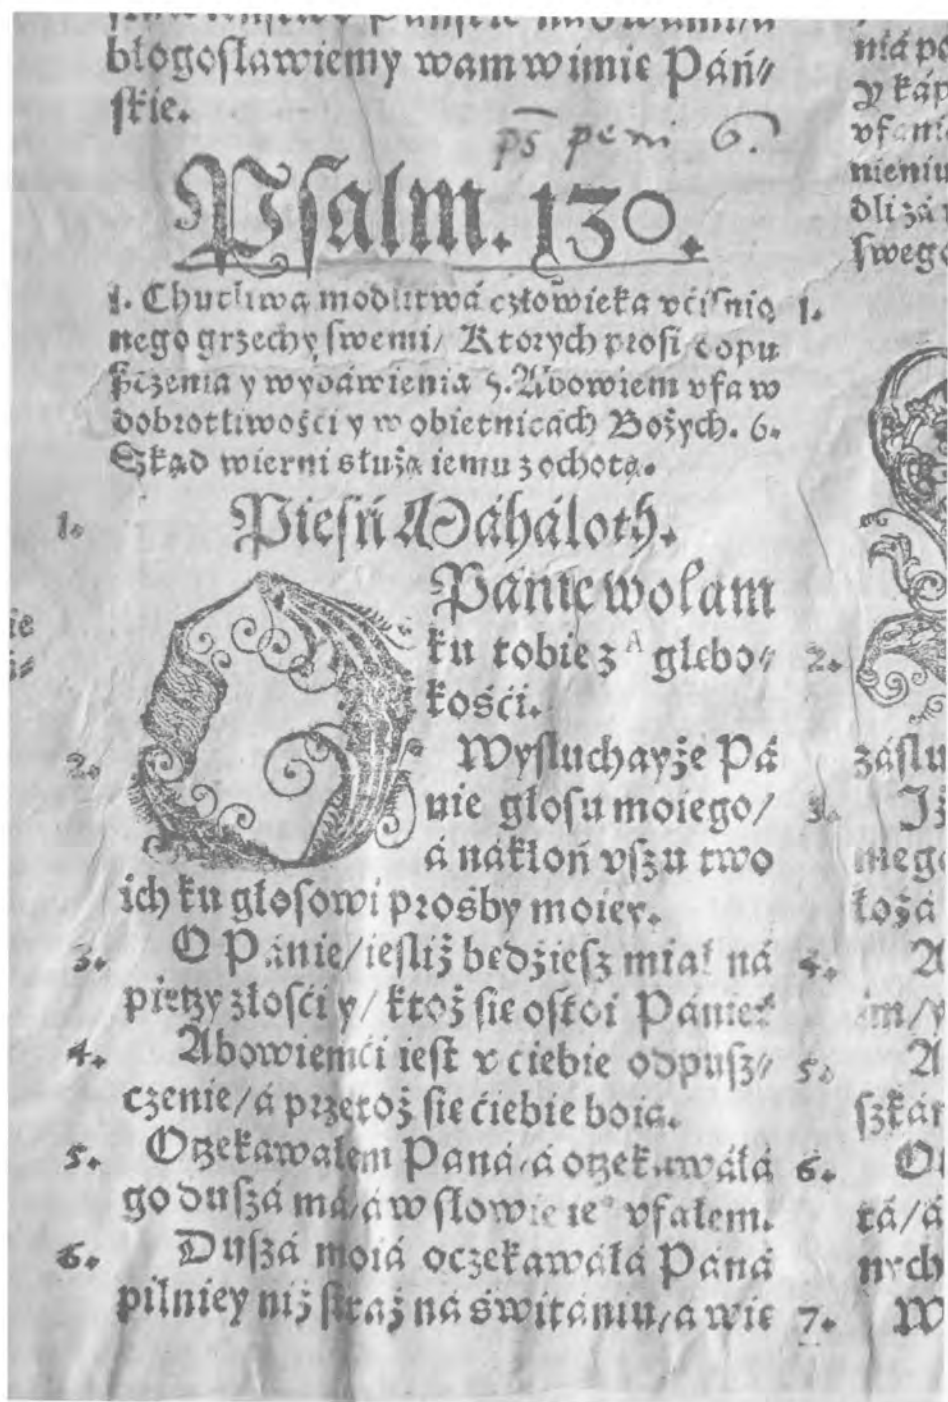 błogosławiemy wam w imie Páń⸗
skie.
ps peni 6.
Psalm. 130.
1. Chutliwa modlitwá człowieka vciśnio 1.
nego grzechy swemi/ Ktorych prosi odpu
szczenia y wybáwienia 5. Abowiem vfa w
dobrotliwości y w obietnicách Bożych. 6.
Skąd wierni służą iemu z ochotą.
1. Pieśń Máháloth.
O Pánie wołam
ku tobie z A głębo⸗ 2.
kości.
2. Wysłuchayże Pá
nie głosu moiego/ 3.
á nákłoń vszu two
ich ku głosowi prośby moiey.
3. O Pánie/ iesliż będziesz miał ná 4.
pieczy złości y/ ktoż sie ostoi Pánie?
4. Abowiemći iest v ciebie odpusz⸗ 5.
czenie/ á przetoż sie ciebie boią.
5. Oczekawałem Paná/ á oczekawáłá 6.
go duszá má/ á w słowie ie° vfałem.
6. Duszá moiá oczekawáłá Páná
pilniey niż straż ná świtániu/ a wię 7.
niá
y káp
nieniu
dli zá
swego
záslu